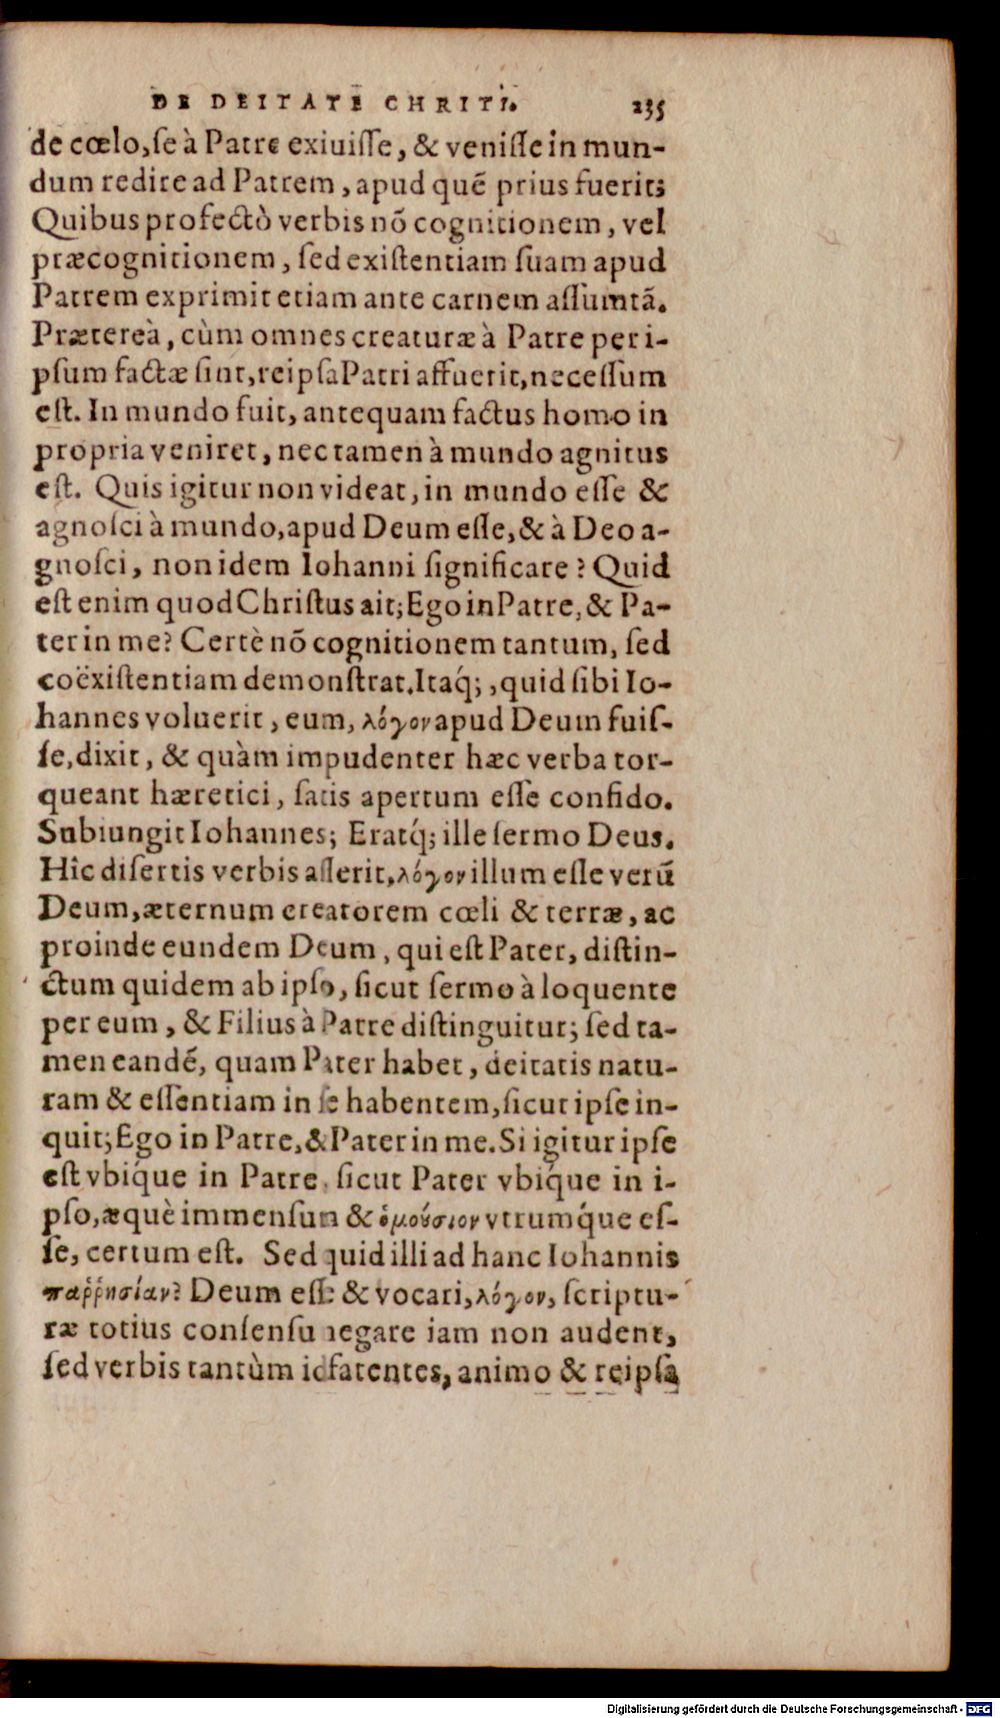 DE DEITATE CHRITI. 235
de cœlo, ſe à Patre exiuiſſe, & veniſſe in mun-
dum redire ad Patrem, apud quẽ prius fuerit;
Quibus profectò verbis nõ cognitionem, vel
præcognitionem, ſed exiſtentiam ſuam apud
Patrem exprimit etiam ante carnem aſſumtã.
Præterea, cùm omnes creaturæ à Patre per i-
pſum factæ ſint, reipſa Patri affuerit, neceſſum
eſt. In mundo fuit, antequam factus homo in
propria veniret, nec tamen à mundo agnitus
eſt. Quis igitur non videat, in mundo eſſe &
agnoſci à mundo, apud Deum eſſe, & à Deo a-
gnoſci, non idem Iohanni ſignificare? Quid
eſt enim quod Chriſtus ait; Ego in Patre, & Pa-
ter in me? Certè nõ cognitionem tantum, ſed
coëxiſtentiam demonſtrat. Itaq́;, quid ſibi Io-
hannes voluerit, eum, λόγον apud Deum fuiſ-
ſe, dixit, & quàm impudenter hæc verba tor-
queant hæretici, ſatis apertum eſſe confido.
Subiungit Iohannes; Eratq́; ille ſermo Deus.
Hîc diſertis verbis aſſerit, λόγον illum eſſe verũ
Deum, æternum creatorem cœli & terræ, ac
proinde eundem Deum, qui eſt Pater, diſtin-
ctum quidem ab ipſo, ſicut ſermo à loquente
per eum, & Filius à Patre diſtinguitur; ſed ta-
men eandẽ, quam Pater habet, deitatis natu-
ram & eſſentiam in ſe habentem, ſicut ipſe in-
quit; Ego in Patre, & Pater in me. Si igitur ipſe
eſt vbiq́ue in Patre, ſicut Pater vbiq́ue in i-
pſo, æquè immenſum & ὁμούσιον vtrumq́ue eſ-
ſe, certum eſt. Sed quid illi ad hanc Iohannis
παῤῥησίαν? Deum eſſe & vocari, λόγον, ſcriptu-
ræ totius conſenſu negare iam non audent,
ſed verbis tantùm id fatentes, animo & reipſa
Digitalisierung gefördert durch die Deutsche Forschungsgemeinschaft - DFG